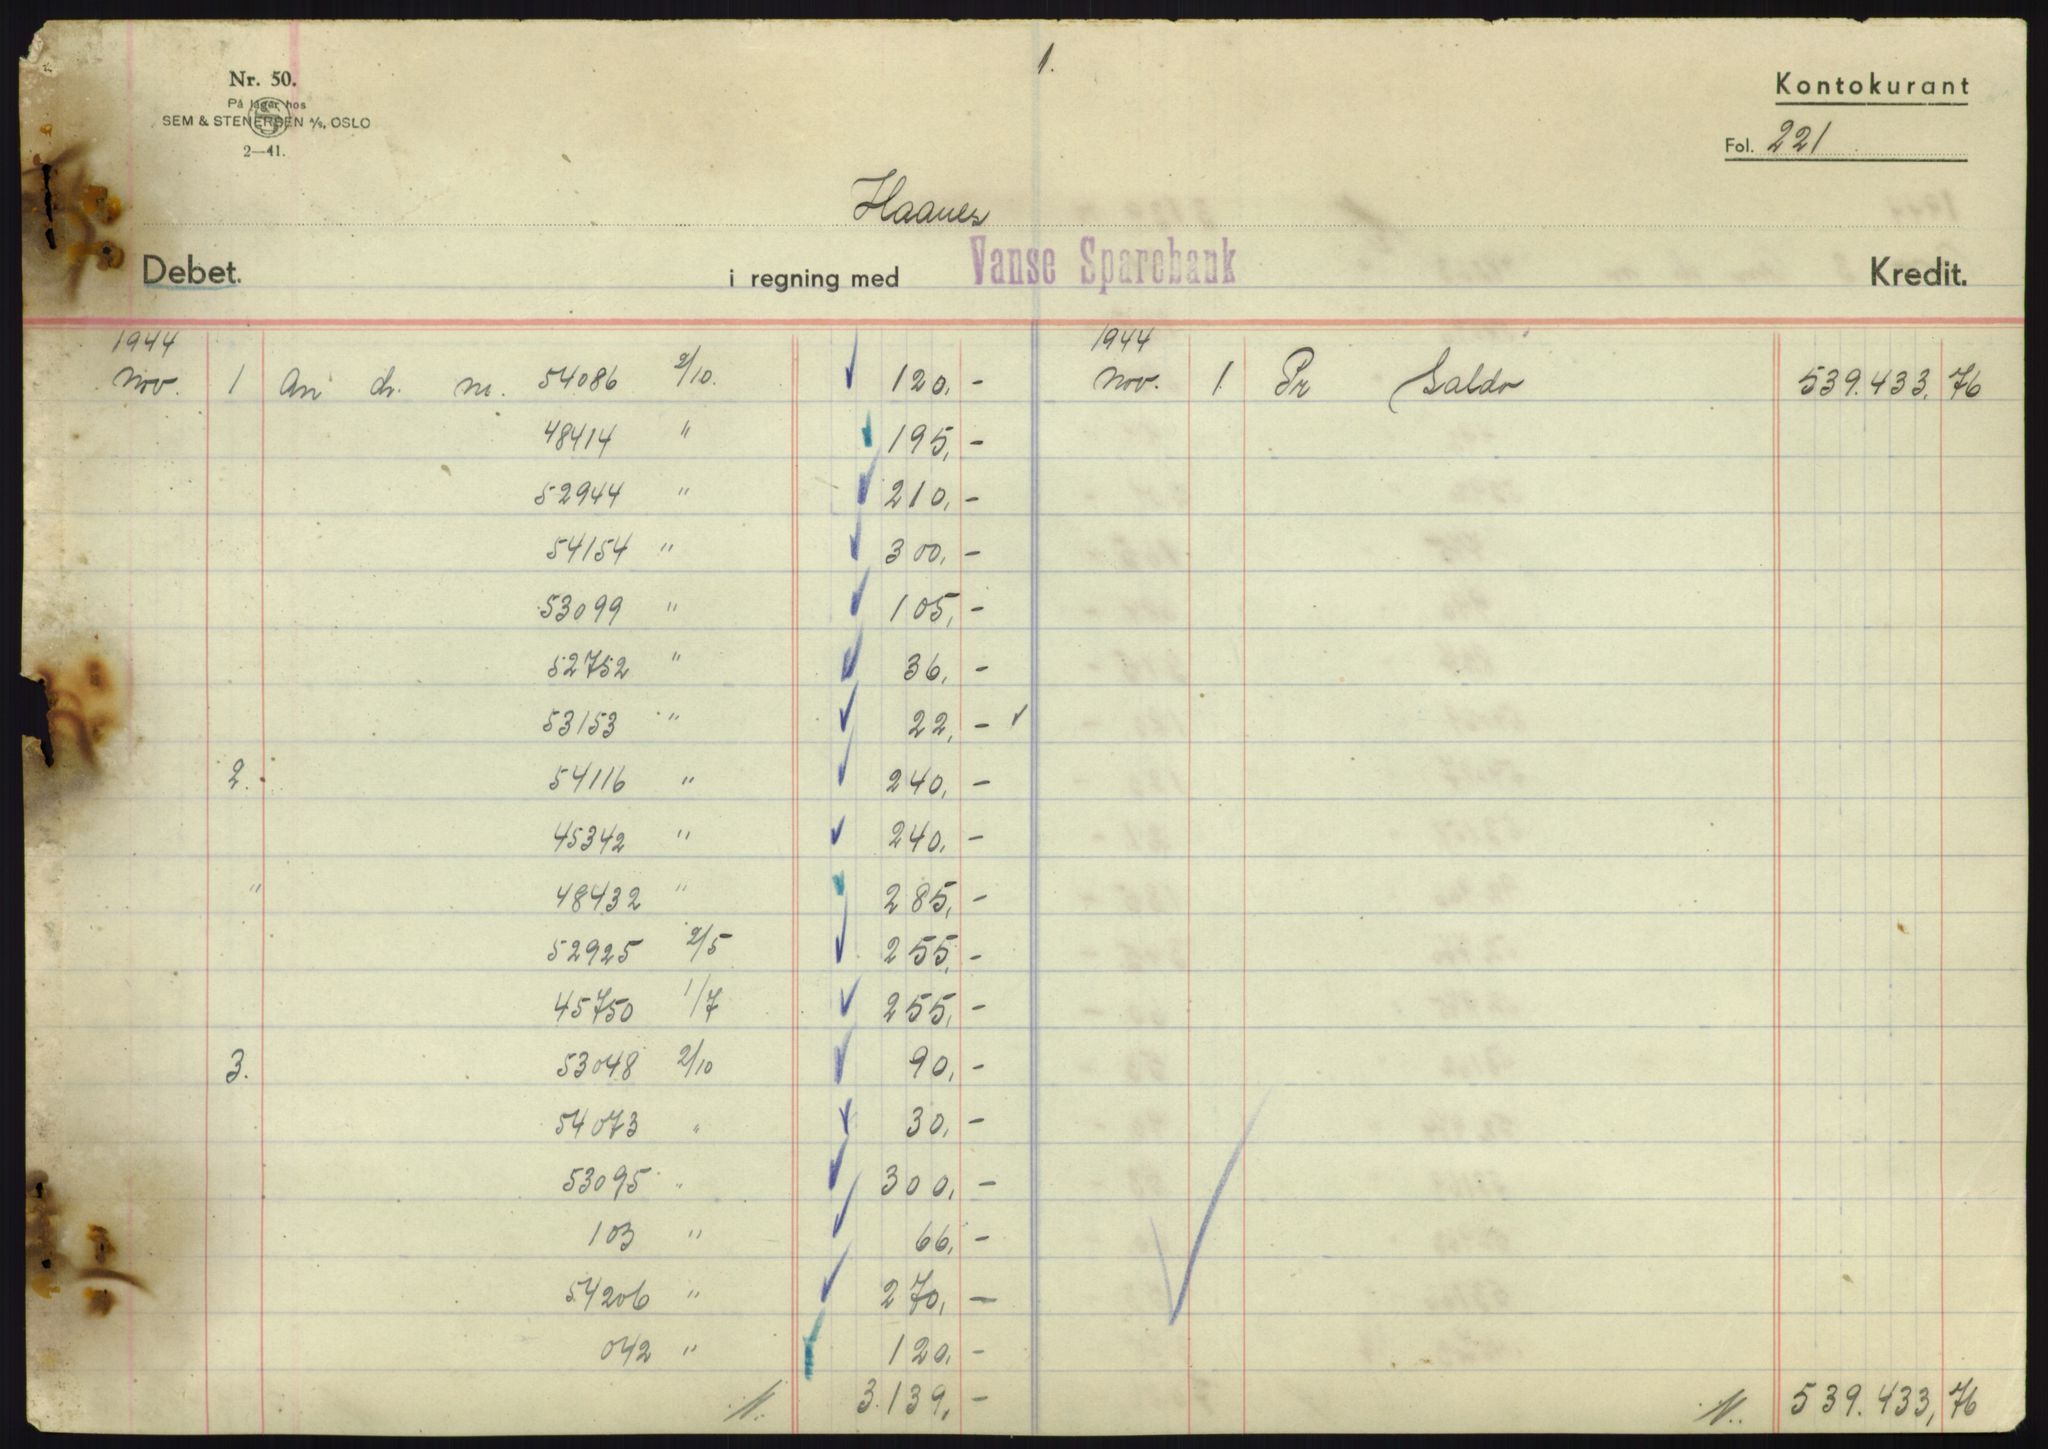 1.
Nr. 50.
På lager hos
SEM & STENERSEN A/S, OSLO
2—41.
Kontokurant
Fol. 221
Haanes
Debet. i regning med Vanse Sparebank Kredit.
1944 1944
Nov. 1 An ch. nr. 54086 2/10. 120,- Nov. 1 Pr Saldo 539.433,76
48414 " 195,-
52944 " 210,-
54154 " 300,-
53099 " 105,-
52752 " 36,-
53153 " 22,-
2. 54116 " 240,-
45342 " 240,-
" 48432 " 285,-
52925 2/5 255,-
45750 1/7 255,-
3. 53048 2/10 90,-
54073 " 30,-
53095 " 300,-
103 " 66,-
54206 " 270,-
042 " 120,-
3.139,- 539.433,76